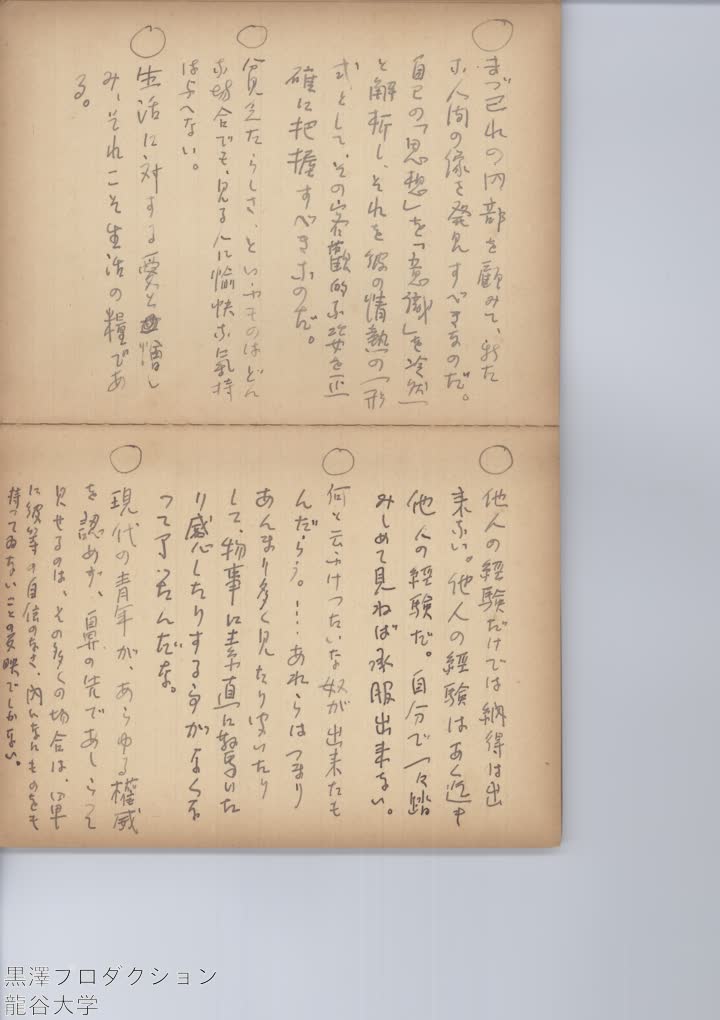 ○
まづ己れの内部を顧みて、新た
な人間の像を発見すべきなのだ。
自己の「思想」を「意識」を冷然
と解析し、それを彼の情熱の一形
式として、その客観的な姿を正
確に把握すべきなのだ。
○
貧乏たらしさ、といふものはどん
な場合でも、見る人に愉快な気持
は与へない。
○
生活に対する愛と憎し
み、それこそ生活の糧であ
る。
○
他人の経験だけでは納得は出
来ない。他人の経験はあく迄も
他人の経験だ。自分で一々踏
みしめて見ねば承服出来ない。
○
何と云ふけつたいな奴が出来たも
んだらう。……あれらはつまり
あんまり多く見たり聞いたり
して、物事に素直に驚いた
り感心したりする事がなくな
つて了つたんだな。
○
現代の青年が、あらゆる権威
を認めず、鼻の先であしらつて
見せるのは、その多くの場合は、単
に彼等の自信のなさ、内になにものをも
持つてゐないことの反映でしかない。
黒澤プロダクション
龍谷大学